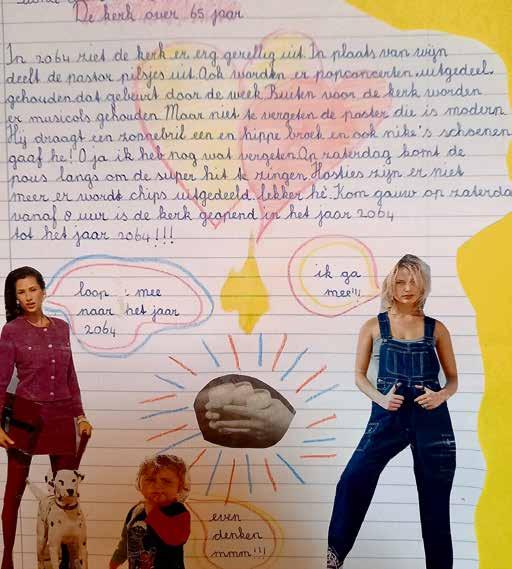 De kerk over 65 jaar
In 2064 ziet de kerk er erg gezellig uit. In plaats van wijn
deelt de pastor pilsjes uit. Ook worden er popconcerten uitgedeel.
gehouden, dat gebeurt door de week. Buiten voor de kerk worden
er musicals gehouden. Maar niet te vergeten de paster die is modern
Hij draagt een zonnebril een en hippe broek en ook nike's schoenen
gaaf he! O ja ik heb nog wat vergeten. Op zaterdag komt de
pous langs om de super hit te zingen. Hosties zijn er niet
meer er wordt chips uitgedeeld. lekker hè. Kom gauw op zaterda
vanaf 8 uur is de kerk geopend in het jaar 2064
tot het jaar 2064!!!
loop : mee
naar het jaar
2064
ik ga
mee!!!
even
denken
mmm!!!